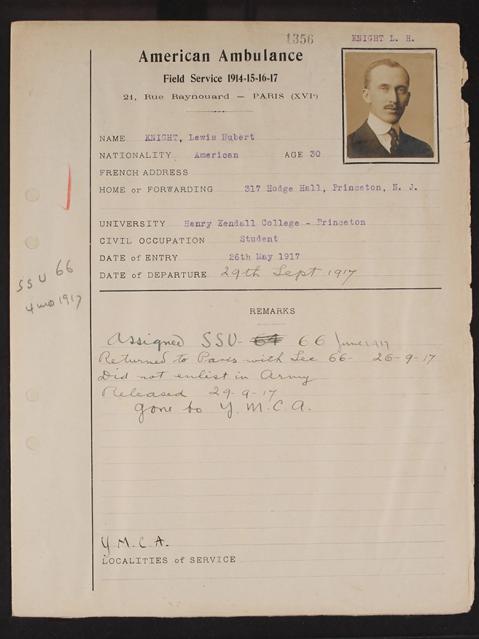 1356
KNIGHT L. H.
American Ambulance
Field Service 1914-15-16-17
21, Rue Raynouard — PARIS (XVIe)
NAME KNIGHT, Lewis Hubert
NATIONALITY American AGE 30
FRENCH ADDRESS
HOME OR FORWARDING 317 Hodge Hall, Princeton, N. J.
UNIVERSITY Henry Kendall College - Princeton
CIVIL OCCUPATION Student
DATE OF ENTRY 26th May 1917
DATE OF DEPARTURE 29th Sept 1917
SSU 66
4 mo 1917
REMARKS
Assigned SSU- 64 66 June 1917
Returned to Paris with Sec 66- 26-9-17
Did not enlist in Army
Released 29-9-17
gone to Y.M.C.A.
Y.M.C.A.
LOCALITIES of SERVICE